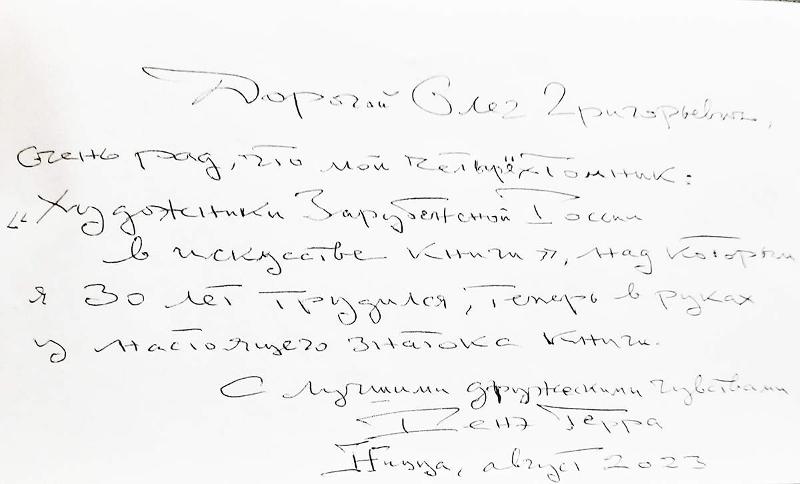 Дорогой Олег Григорьевич,
очень рад, что мой четырёхтомник:
"Художники Зарубежной России
в искусстве книги", над которым
я 30 лет трудился, теперь в руках
у настоящего знатока книги.
С лучшими дружескими чувствами
Ренэ Герра
Ницца, август 2023